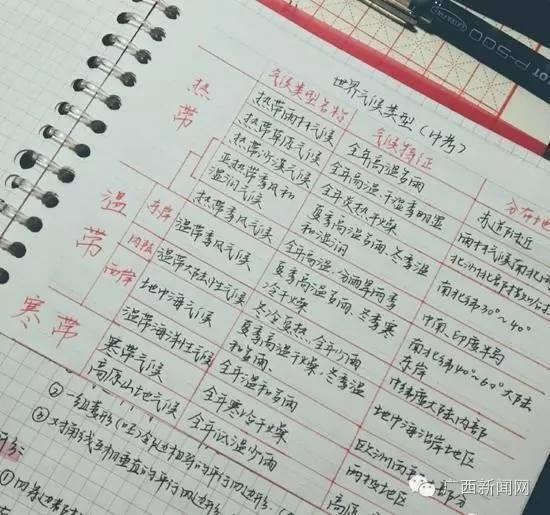 世界气候类型(中考)
热带
气候类型名称
气候特征
分布地
热带雨林气候
全年高温多雨
赤道附近
热带草原气候
全年高温,干湿季明显
雨林气候南北
热带沙漠气候
全年炎热干燥
亚热带季风和
湿润气候
夏季高温多雨、冬季温
和湿润
南北纬30°~40°
热带季风气候
全年高温,分两旱雨季
中南、印度半岛
温带
东岸
温带季风气候
夏季高温多雨、冬季寒
冷干燥
南北纬40°~60°大陆
东岸
内陆
温带大陆性气候
冬冷夏热,全年少雨
大陆内部
西岸
地中海气候
夏季高温干燥、冬季温
和多雨
地中海沿岸地区
温带海洋性气候
全年温和多雨
欧洲西部
寒带
寒带气候
全年寒冷干燥
两极地区
高原山地气候
全年低温少雨
高原
②一组菱形
③对角线互相垂直的平行四边形
P-500
广西新闻网